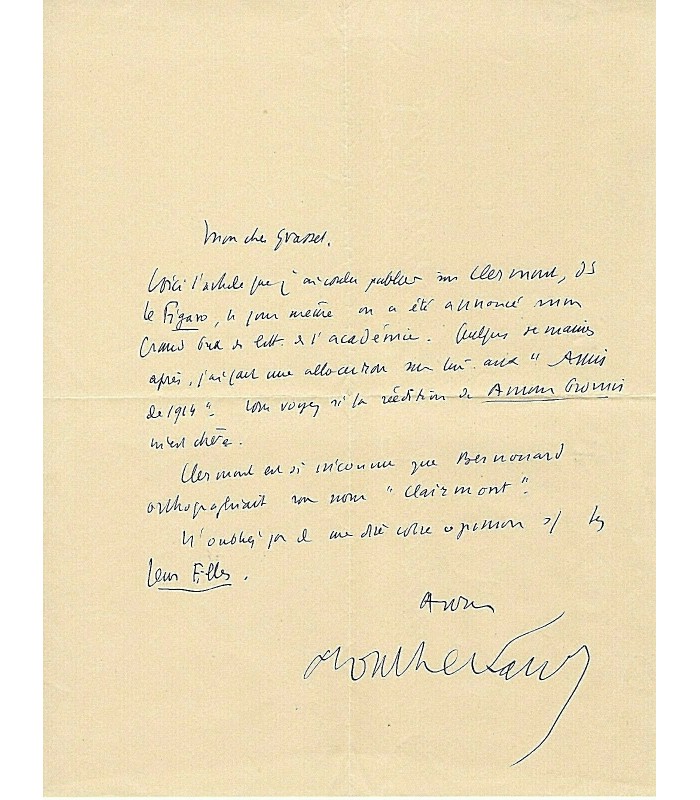 Mon cher Grasset,
Voici l'article que j'ai voulu publier sur Clermont, ds
le Figaro, le jour même on a été annoncé mon
Grand Prix de litt. de l'académie. Quelques semaines
après, j'ai fait une allocution sur lui aux "Amis
de 1914". Vous voyez si la réédition de Amour Promis
m'est chère.
Clermont est si inconnu que Bernouard
orthographiait son nom "Clairmont".
N'oubliez pas de me dire votre opinion s/ les
Jeunes Filles.
Montherlant